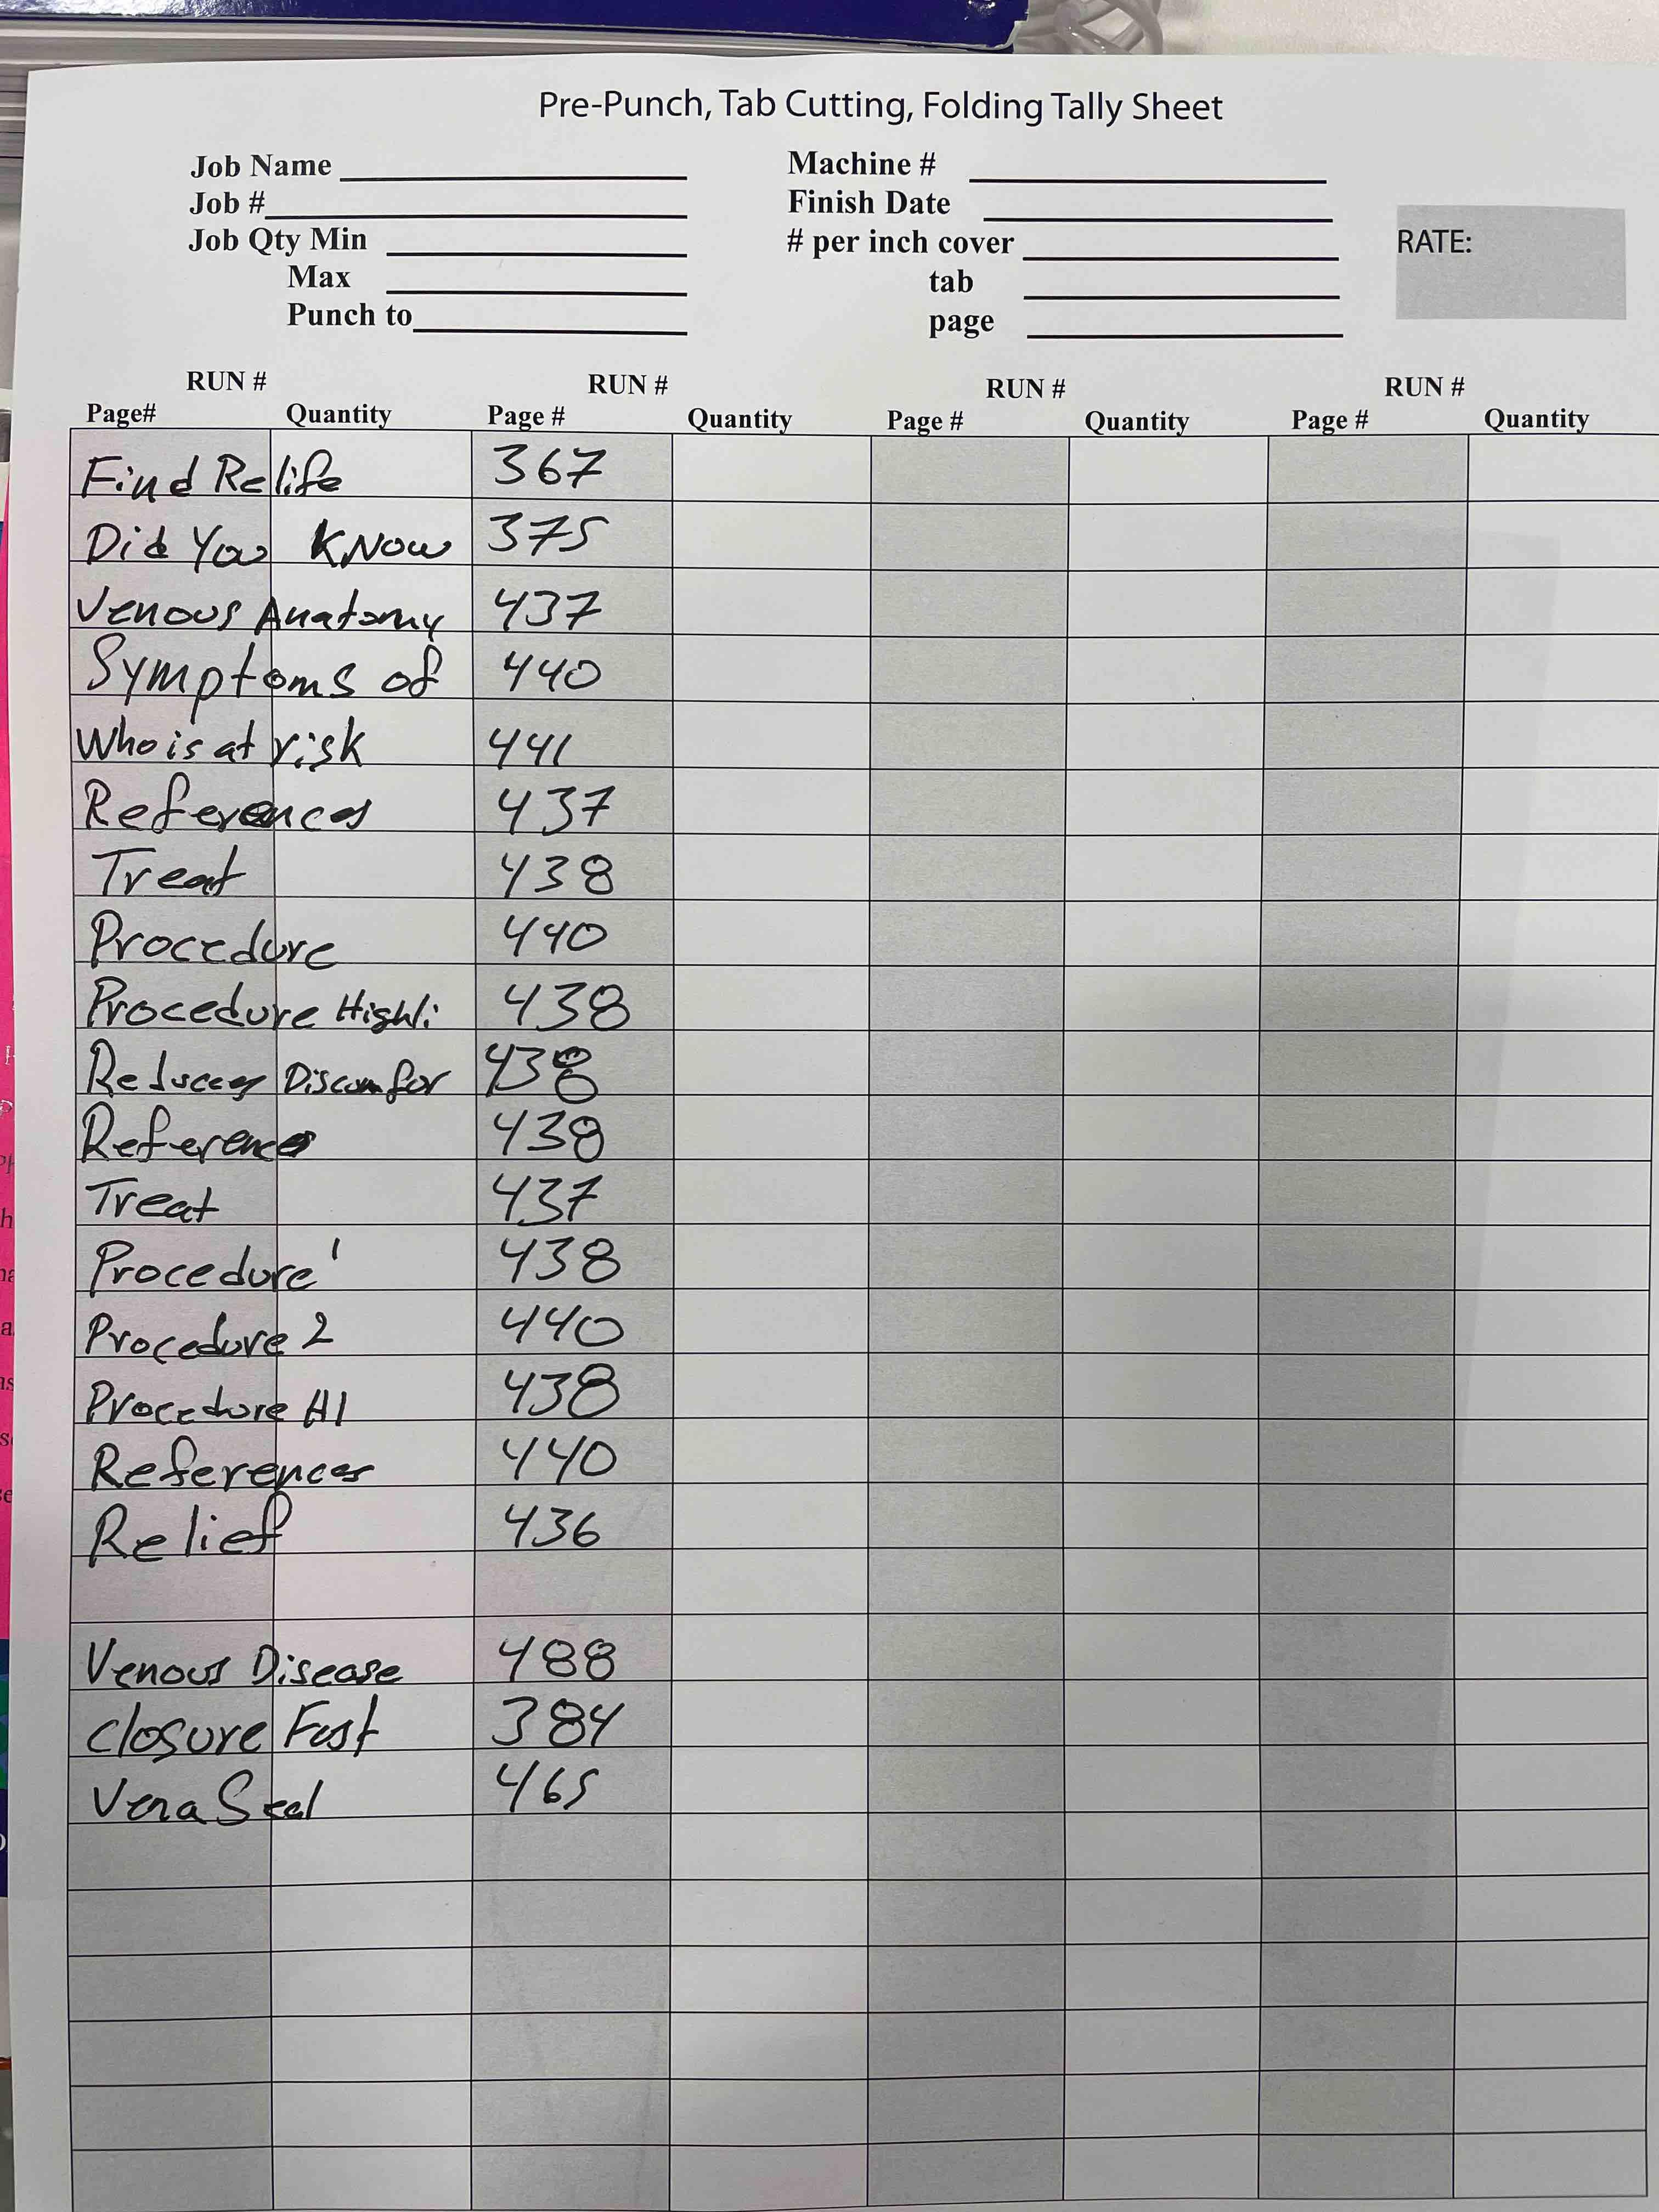 Pre-Punch, Tab Cutting, Folding Tally Sheet
Job Name Machine #
Job # Finish Date
Job Qty Min # per inch cover RATE:
Max tab
Punch to page
RUN # RUN # RUN # RUN #
Page# Quantity Page # Quantity Page # Quantity Page # Quantity
Find Relife 367
Did You KNow 375
Venous Anatomy 437
Symptoms of 440
Who is at risk 441
References 437
Treat 438
Procedure 440
Procedure Highli 438
Discomfor 438
References 438
Treat 437
Procedure 1 438
Procedure 2 440
Procedure HI 438
References 440
Relief 436
Venous Disease 488
Closure Fast 384
Vena Seal 465